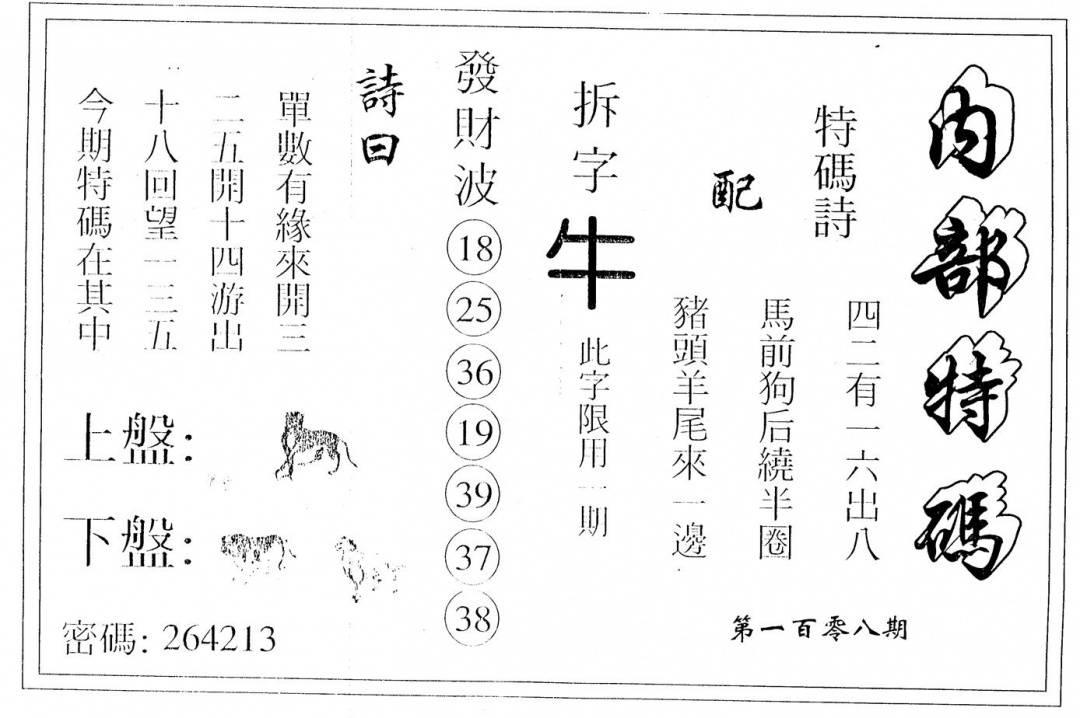 內部特碼
第一百零八期
特碼詩
四二有一六出八
配
馬前狗后繞半圈
豬頭羊尾來一邊
拆字
牛
此字限用一期
發財波
18
25
36
19
39
37
38
詩曰
單數有緣來開三
二五開十四游出
十八回望一三五
今期特碼在其中
上盤:
下盤:
密碼: 264213